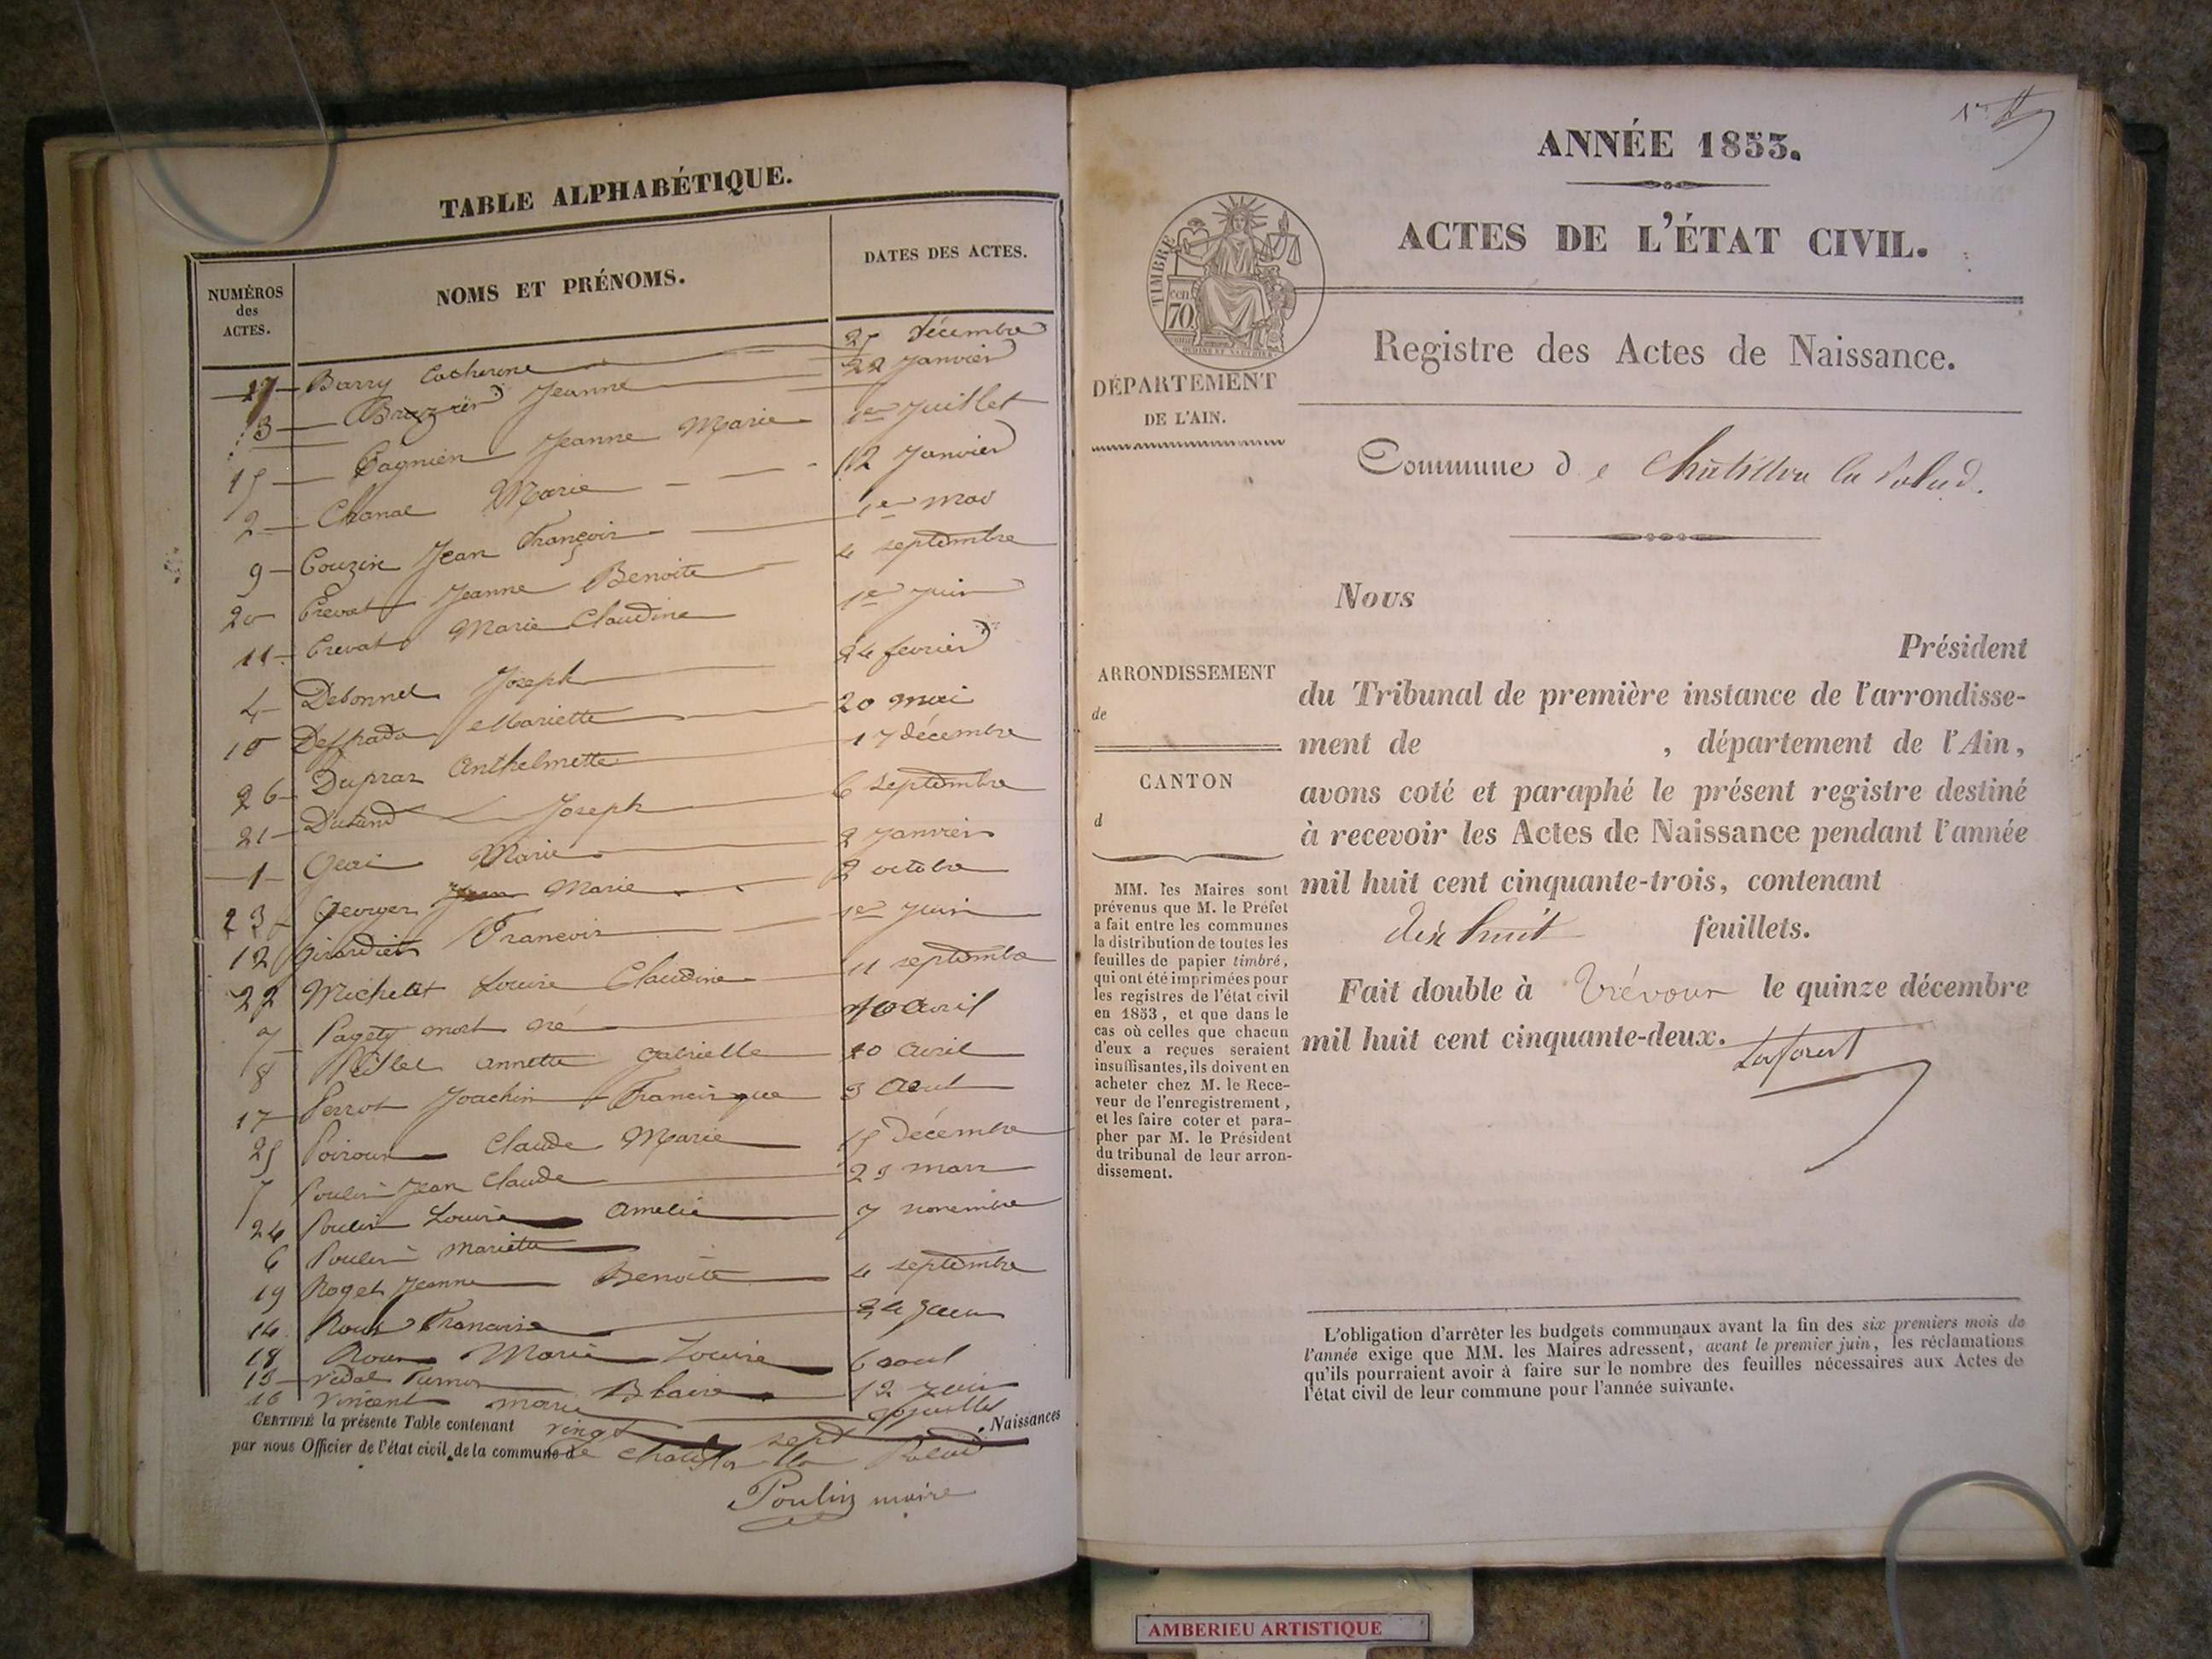 TABLE ALPHABÉTIQUE.
NUMÉROS des ACTES.
NOMS ET PRÉNOMS.
DATES DES ACTES.
27 Barry Catherine 27 décembre
3 Brazier Jeanne 22 Janvier
15 Cagnien Jeanne Marie 1er Juillet
2 Chanal Marie 12 Janvier
9 Couzin Jean François 1er
20 Crevat Jeanne Benoite 4 septembre
11 Crevat Marie Claudine 1er Juin
4 Debonnel Joseph 24 fevrier
10 Mariette 20 mai
26 Dupraz Anthelmette 17 décembre
21 Joseph 6 septembre
1 Geai Marie 2 Janvier
23 Georges Marie 2 octobre
12 Girardier François 1er Juin
22 Michelet Louise Claudine 11 septembre
7 Paget mort né 10 avril
8 Annette Gabrielle 10 avril
17 Perrot Joachin Francisque 3 Aout
25 Claude Marie 15 Décembre
5 Poulin Jean Claude 25 mars
24 Poulin Louise Amelie 7 novembre
6 Poulin Mariette
19 Roget Jeanne Benoite 4 septembre
14 Roux Françoise 24 Juin
18 Roux Marie Louise 6 aout
13 Vidal 12 Juin
16 Vincent Marie Juillet
CERTIFIÉ la présente Table contenant vingt sept Naissances
par nous Officier de l'état civil de la commune de Chatillon la Palud
Poulin maire
ANNÉE 1853.
ACTES DE L'ÉTAT CIVIL.
TIMBRE
cen
70
Registre des Actes de Naissance.
DÉPARTEMENT
DE L'AIN.
Commune de Châtillon la Palud.
Nous
Président
ARRONDISSEMENT
de
CANTON
d
du Tribunal de première instance de l'arrondisse-
ment de , département de l'Ain,
avons coté et paraphé le présent registre destiné
à recevoir les Actes de Naissance pendant l'année
mil huit cent cinquante-trois, contenant
dix huit feuillets.
Fait double à Trévoux le quinze décembre
mil huit cent cinquante-deux.
MM. les Maires sont
prévenus que M. le Préfet
a fait entre les communes
la distribution de toutes les
feuilles de papier timbré,
qui ont été imprimées pour
les registres de l'état civil
en 1853, et que dans le
cas où celles que chacun
d'eux a reçues seraient
insuffisantes, ils doivent en
acheter chez M. le Rece-
veur de l'enregistrement,
et les faire coter et para-
pher par M. le Président
du tribunal de leur arron-
dissement.
L'obligation d'arrêter les budgets communaux avant la fin des six premiers mois de
l'année exige que MM. les Maires adressent, avant le premier juin, les réclamations
qu'ils pourraient avoir à faire sur le nombre des feuilles nécessaires aux Actes de
l'état civil de leur commune pour l'année suivante.
AMBERIEU ARTISTIQUE